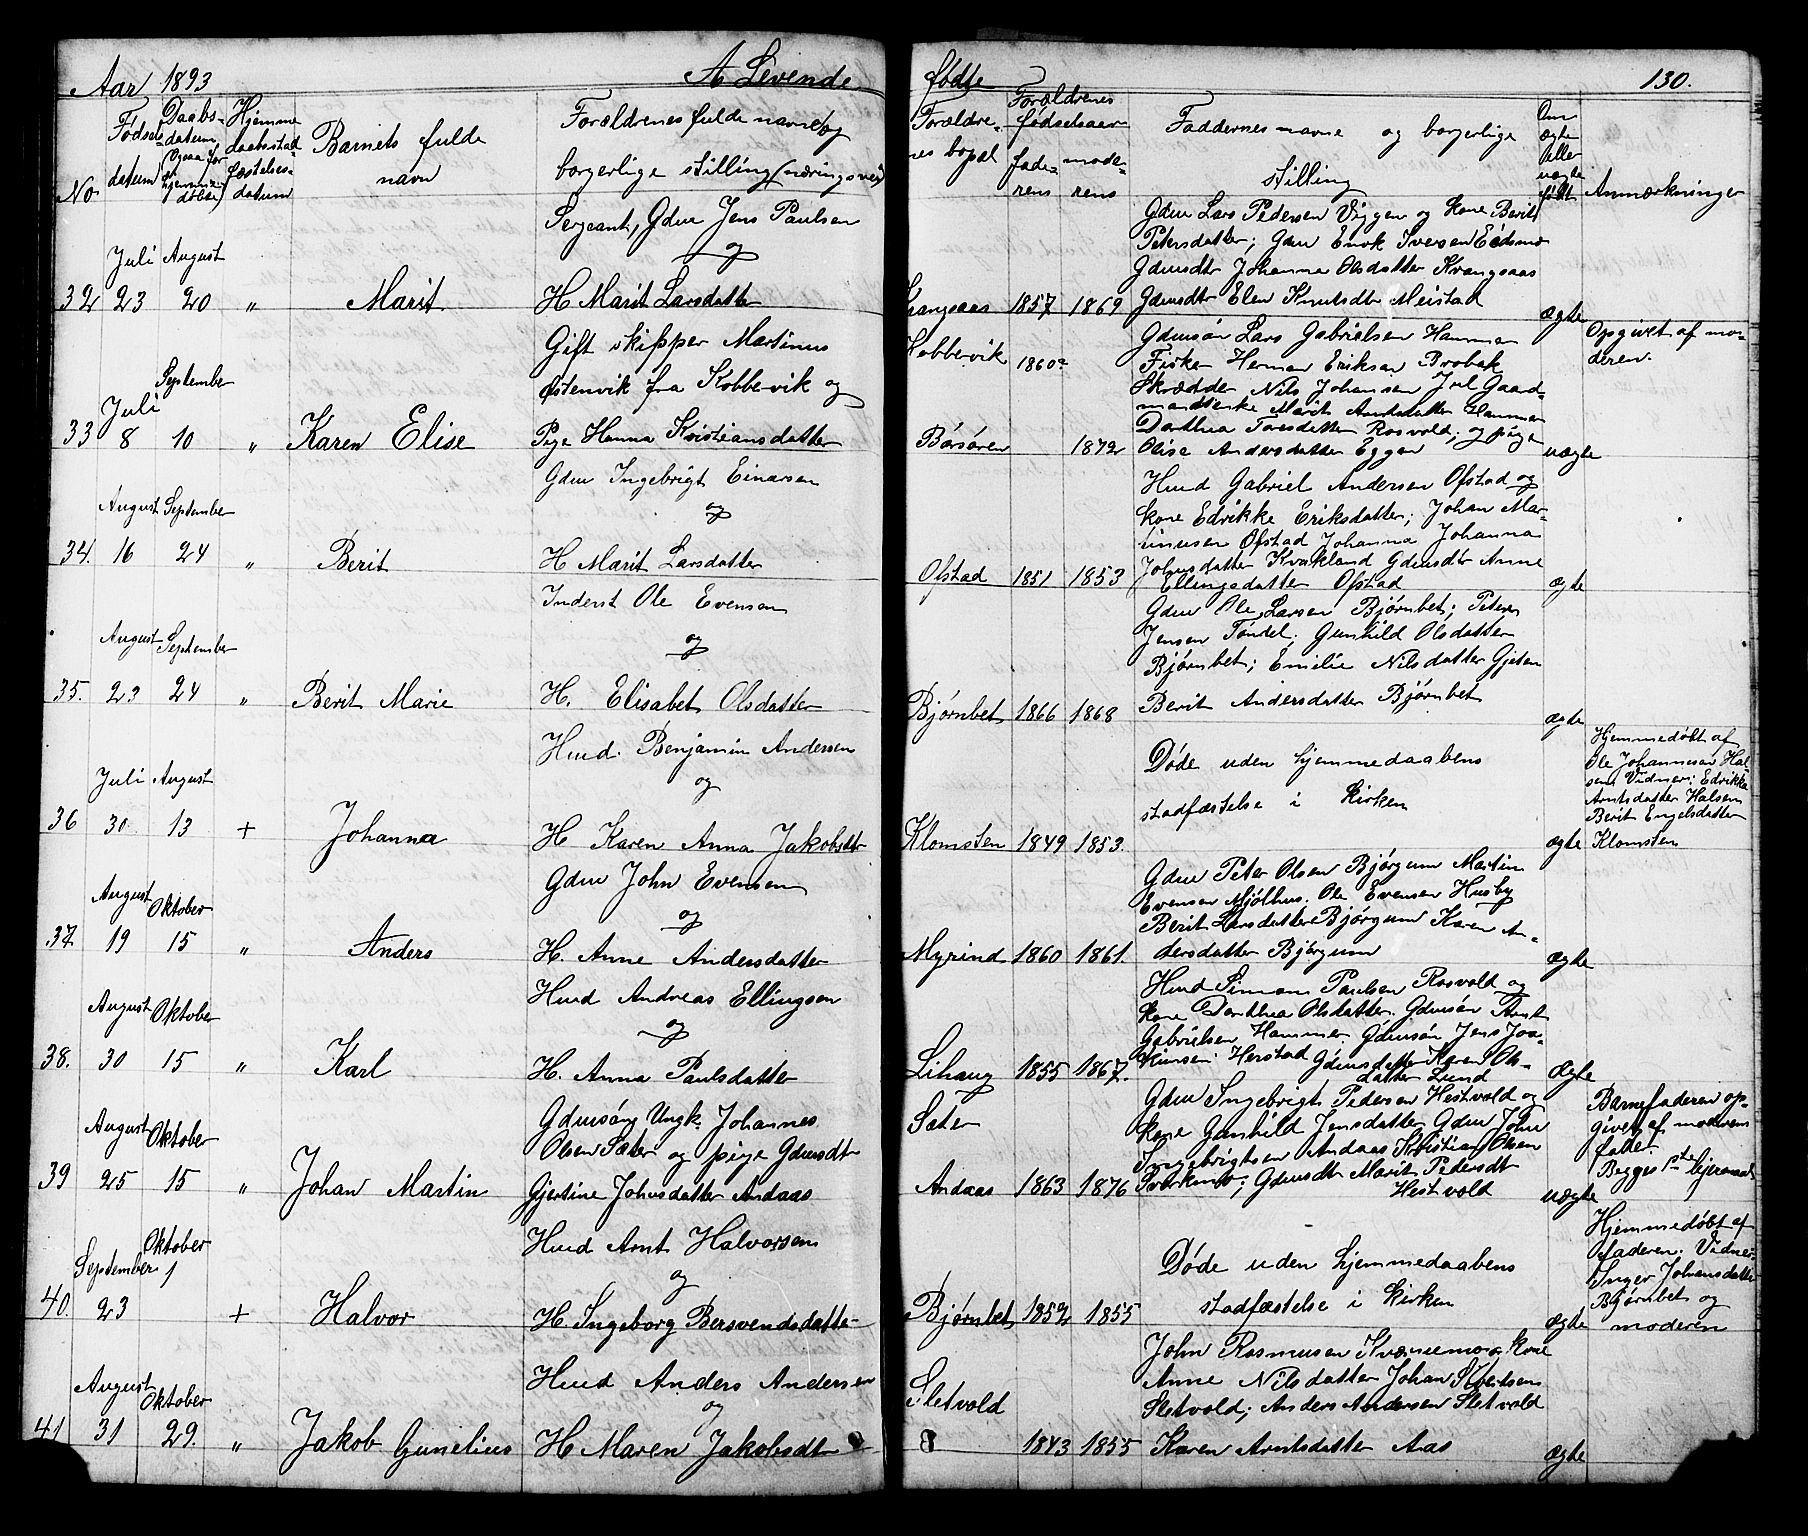 Aar 1893 A Levende fødte 130.
No
Fødsels-
datum
Daabs-
datum
(Ogsaa for
hjemme-
døbte)
Hjemme
daabsstad
fæstelses-
datum
Barnets fulde
navn
Forældrenes fulde navne og
borgerlige stilling (næringsvei)
Forældre-
nes bopæl
Forældrenes
fødselsaar
fade-
rens
mode-
rens
Faddernes navne og borgerlige
stilling
Om
ægte
eller
uægte
født
Anmærkninger
32 Juli 23 August 20 " Marit
Sergeant, Gdm Jens Paulsen
og
H Marit Larsdatter
Krangsaas 1857 1869
Gdm Lars Pedersen Viggen og kone Berit
Petersdatter; Gdm Enok Iversen Eidsmo
Gdmsdtr Johanna Olsdatter Krangsaas
Gdmsdtr Elen Knutsdtr Meistad
ægte
33 Juli 8 September 10 " Karen Elise
Gift skipper Martinus
Østenvik fra Kobbervik og
Pige Hanna Kristiansdatter
Kobbervik 1860?
Børsøren 1872
Gdmsøn Lars Gabrielsen Hammer
Fisker Herman Eriksen Brobak
Skrædder Nils Johansen Jul Gaard-
mandsenke Marit Arntsdatter Hammer
Dorthea Toresdatter Rosvold; og pige
Olise Andersdatter Eggen
uægte
Opgivet af mo-
deren.
34. August 16 September 24 " Berit
Gdm Ingebrigt Einarsen
og
H Marit Larsdatter
Ofstad 1851 1853
Husd Gabriel Andersen Ofstad og
kone Edrikke Eriksdatter; Johan Mar-
tinusen Ofstad Johanna Johanna
Johnsdatter Kvakland Gdmsdtr Anne
Ellingsdatter Ofstad
ægte
35. August 23 September 24 " Berit Marie
Inderst Ole Evensen
og
H. Elisabet Olsdatter
Bjørnbet 1866 1868
Gdm Ole Larsen Bjørnbet; Peter
Jensen Tøndel; Gunhild Olsdatter
Bjørnbet; Emilie Nilsdatter Gjeten
Berit Andersdatter Bjørnbet
ægte
36 Juli 30 August 13 + Johanna
Husd. Benjamin Andersen
og
H Karen Anna Jakobsdtr
Klomsten 1849 1853.
Døde uden hjemmedaabens
stadfæstelse i kirken
ægte
Hjemmedøbt af
Ole Johannesen Hal-
sen Vidner: Edrikke
Arntsdatter Halsen
Berit Engelsdatter
Klomsten
37. August 19 Oktober 15 " Anders
Gdm John Evensen
og
H. Anne Andersdatter
Myrind 1860 1861.
Gdm Peter Olsen Bjørgum Martin
Evensen Mjølhus. Ole Evensen Husby
Berit Larsdatter Bjørgum Karen An-
dersdatter Bjørgum
ægte
38. August 30 Oktober 15 " Karl
Husd Andreas Ellingsen
og
H. Anna Paulsdatter
Lihaug 1855 1867.
Husd Simon Paulsen Rosvold og
kone Dorthea Olsdatter. Gdmsøn Arnt
Gabrielsen Hammer Gdmsøn Jens Joa-
kimsen Herstad Gdmsdatter Karen Ols-
datter Lund
ægte
39 August 25 Oktober 15 " Johan Martin
Gdmsøn Ungk. Johannes
Olsen Sæter og pige Gdmsdtr
Gjertine Johnsdatter Andaas
Sæter
Andaas 1863 1876
Gdm Ingebrigt Pedersen Hestvold og
kone Gunhild Jensdatter Gdm John
Ingebrigtsen Andaas Kristian Olsen
Sværkmo; Gdmsdtr Marit Pedersdtr
Hestvold
uægte
Barnefaderen op-
givet af moderens
fader.
Begges 1ste leiermaal
40. September 23 Oktober 1 + Halvor
Husd Arnt Halvorsen
og
H Ingeborg Bersvendsdatter
Bjørnbet 1852 1855
Døde uden hjemmedaabens
stadfæstelse i kirken
ægte
Hjemmedøbt af
faderen. Vidner
Inger Johansdatter
Bjørnbet og
moderen
41 August 31 Oktober 29. " Jakob Gunelius
Husd Anders Andersen
og
H Maren Jakobsdtr
Sletvold 1843 1855
John Rasmusen Kvernmo og kone
Anne Nilsdatter Johan Sivertsen
Sletvold; Anders Andersen Sletvold
Karen Arntsdatter Aas
ægte